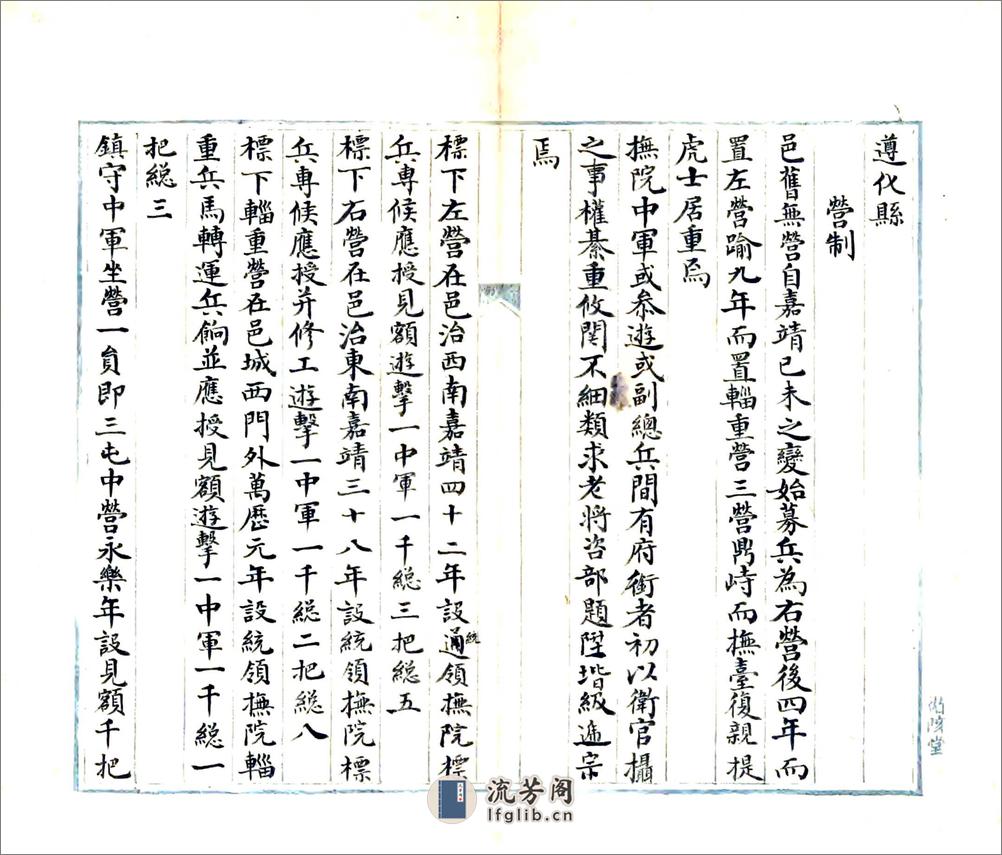 遵化縣
營制
邑舊無營自嘉靖己未之變始募兵為右營後四年而
置左營踰九年而置輜重營三營鼎峙而撫臺復親提
虎士居重焉
撫院中軍或叅遊或副總兵間有府銜者初以衛官攝
之事權綦重攸関不細類求老將咨部題陞堦級遞宗
焉
標下左營在邑治西南嘉靖四十二年設通統領撫院標
兵専候應授見額遊擊一中軍一千総三把総五
標下右營在邑治東南嘉靖三十八年設統領撫院標
兵専候應授并修工遊擊一中軍一千総二把総八
標下輜重營在邑城西門外萬歷元年設統領撫院輜
重兵馬轉運兵餉並應授見額遊擊一中軍一千総一
把総三
鎮守中軍坐營一員即三屯中營永樂年設見額千把
流芳阁
lfglib.cn